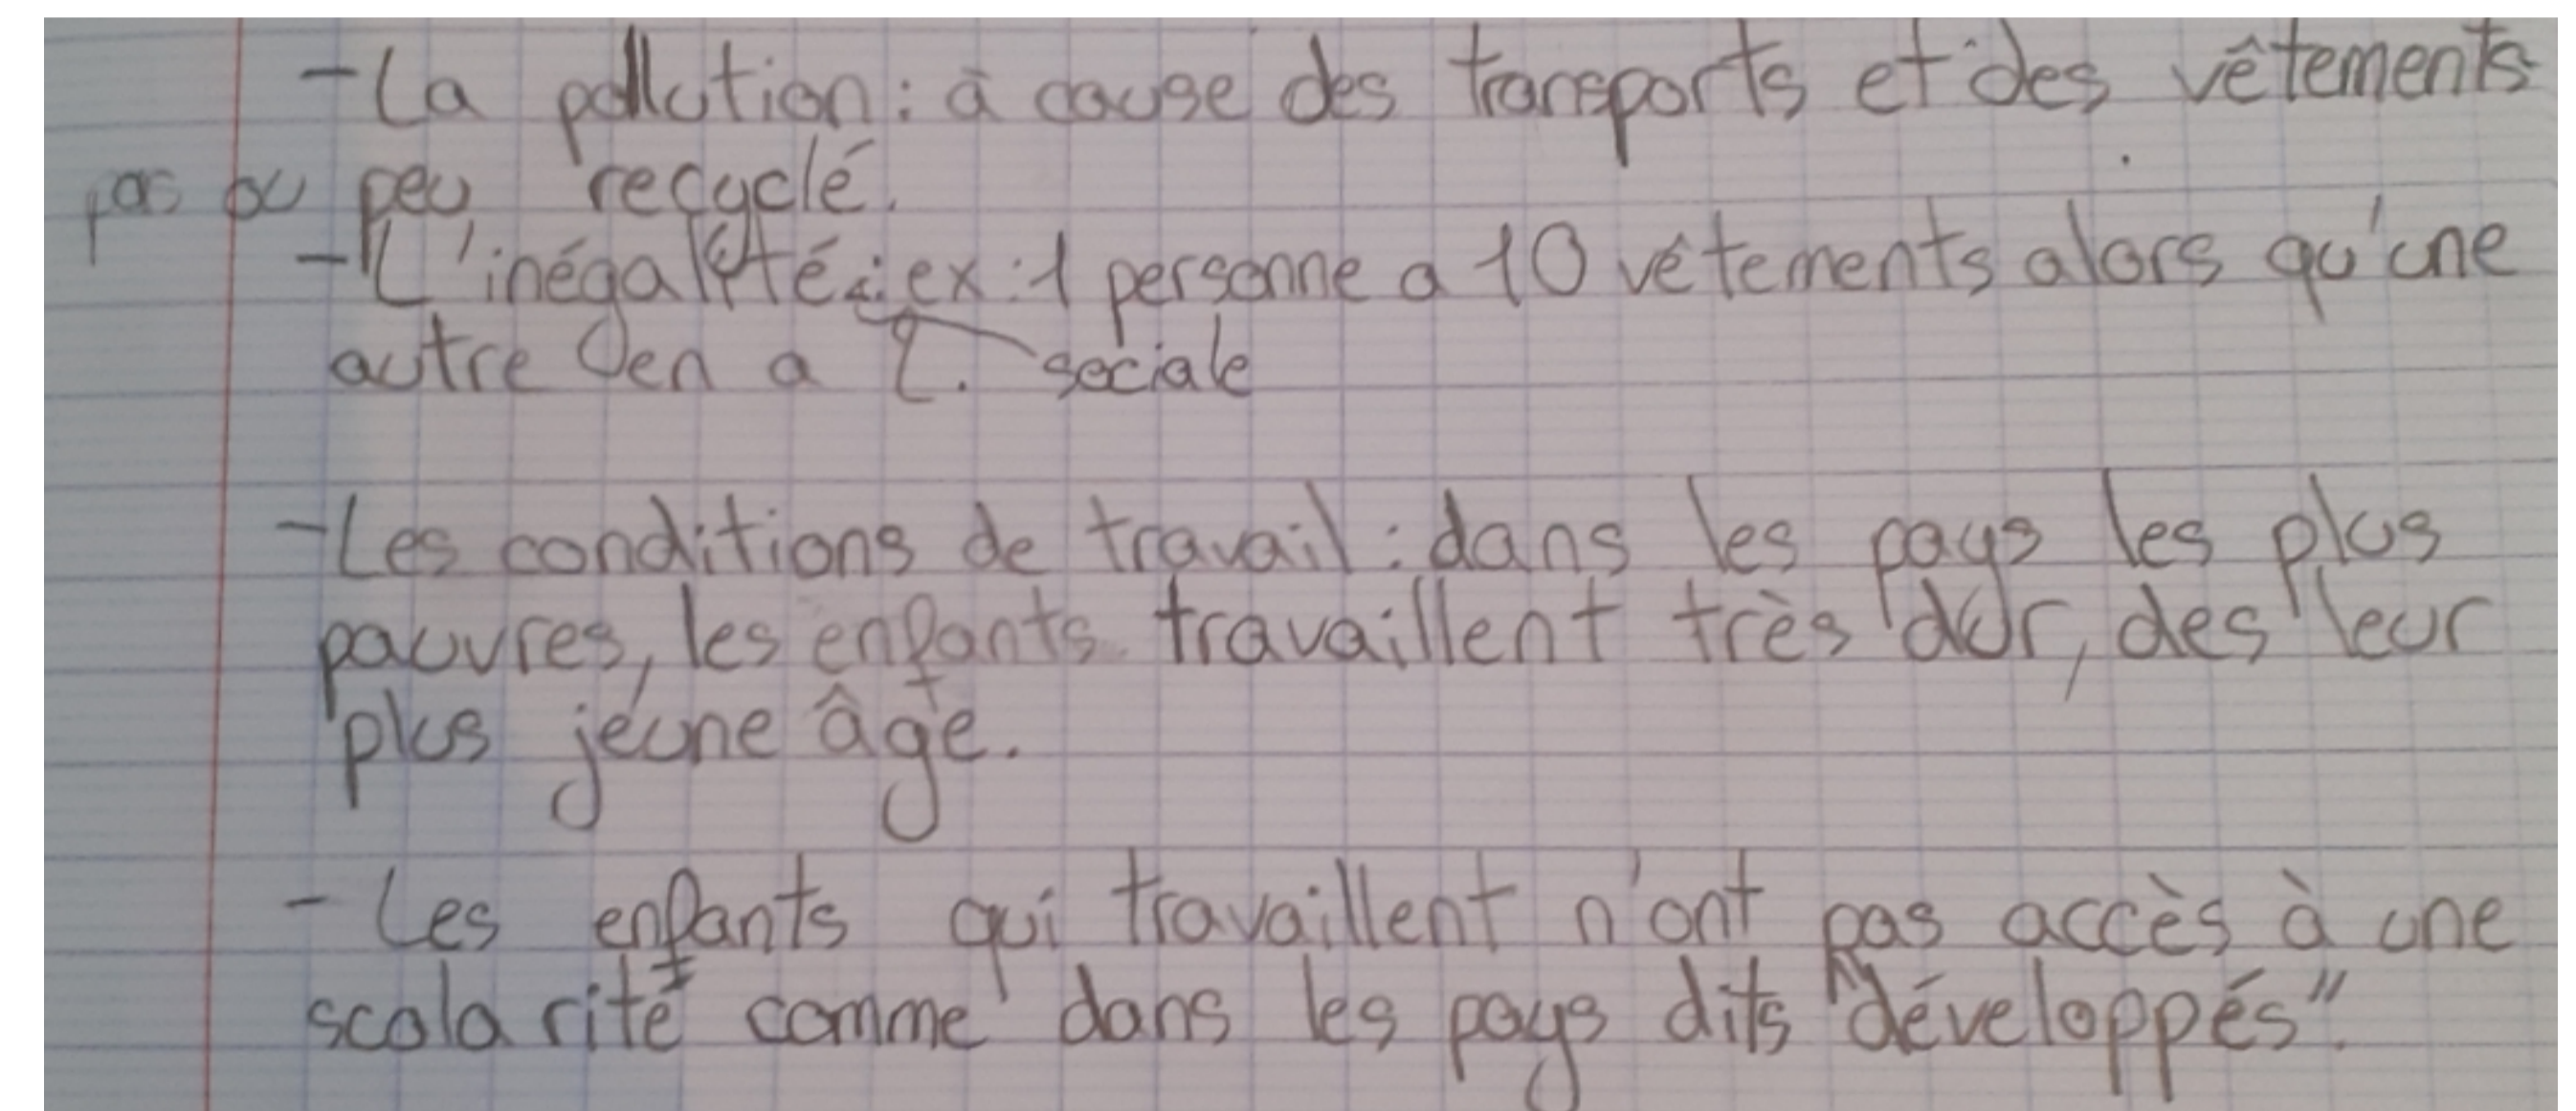 - La pollution : à cause des transports et des vêtements
pas ou peu recyclé.
- L'inégalité : ex : 1 personne a 10 vétements alors qu'une
autre en a 2. sociale
- Les conditions de travail : dans les pays les plus
pauvres, les enfants travaillent très dur, des leur
plus jeune âge.
- Les enfants qui travaillent n'ont pas accès à une
scolarité comme dans les pays dits "développés".